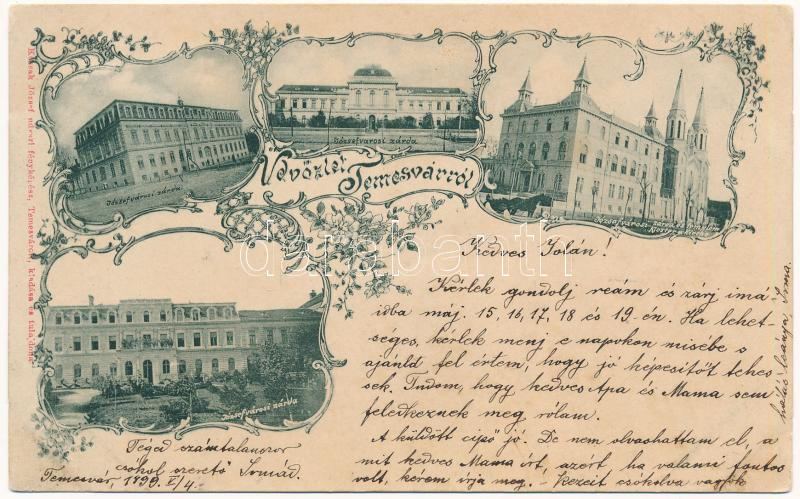 Kossak József udvari fényképész, Temesvárott, kiadása és tulajdona.
Józsefvárosi zárda
Józsefvárosi zárda
Józsefvárosi zárda és templom
Üdvözlet Temesvárról
Józsefvárosi zárda
darabanth
Kedves Jolán!
Kérlek gondolj reám és zárj imá
idba máj. 15, 16, 17, 18 és 19-én. Ha lehet-
séges, kérlek menj e napokon misébe s
ajánld fel értem, hogy jó képesítőt tehes
sek. Tudom, hogy kedves Apa és Mama sem
feledkeznek meg rólam.
A küldött cipő jó. De nem olvashattam el, a
mit kedves Mama írt, azért ha valami fontos
volt, kérem írja meg. – Kezeit csókolva vagyok
hálás leánya Irma.
Téged számtalanszor
csókol szerető Irmád.
Temesvár, 1899. V/4.